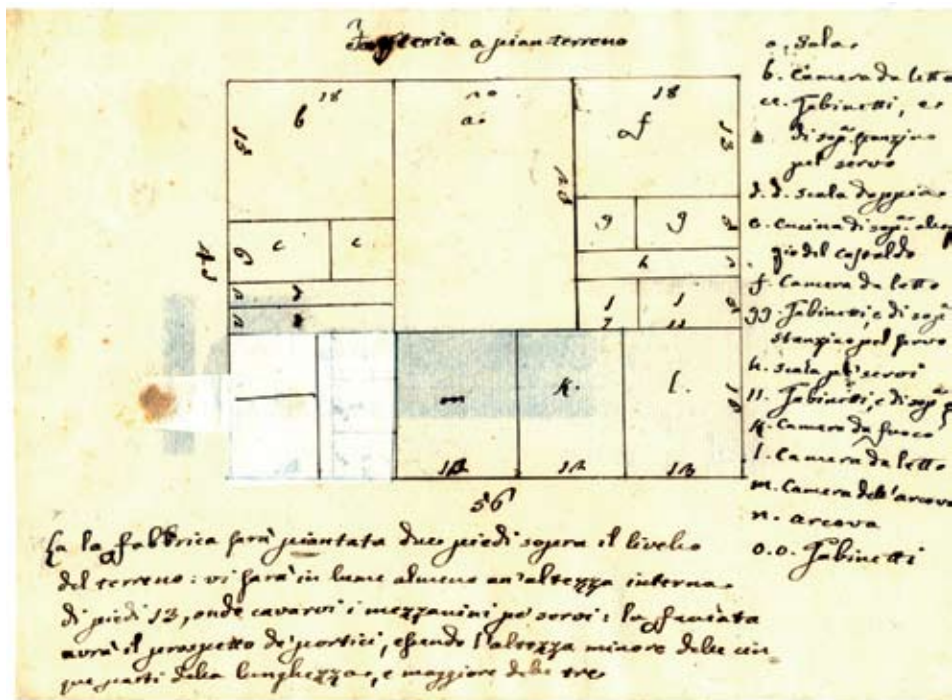 a pian terreno
18
b
15
20
a.
18
f
13
28
c
c
6
45
g
g
h
2
2
7
11
m
k.
l.
12
12
13
56
a. Sala
b. Camera da letto
cc. Gabinetti, e
di sop.ª stanzino
pel servo
d.d. Scala doppia
e. Cucina di sop.ª
gio del castaldo
f. Camera da letto
gg. Gabinetti, e di sop.ª
stanzino pel servo
h. Scala pe' servi
Gabinetti, e di sop.ª
k. Camera da fuoco
l. Camera da letto
m. Camera dell'arcova
n. arcova
o.o. Gabinetti
la fabbrica sarà piantata due piedi sopra il livello
del terreno: vi sarà in lume almeno un'altezza interna
di piedi 13, onde cavarvi i mezzanini pe' servi: la facciata
avrà il prospetto de' portici, essendo l'altezza minore delle cin-
que parti della lunghezza, e maggiore delle tre